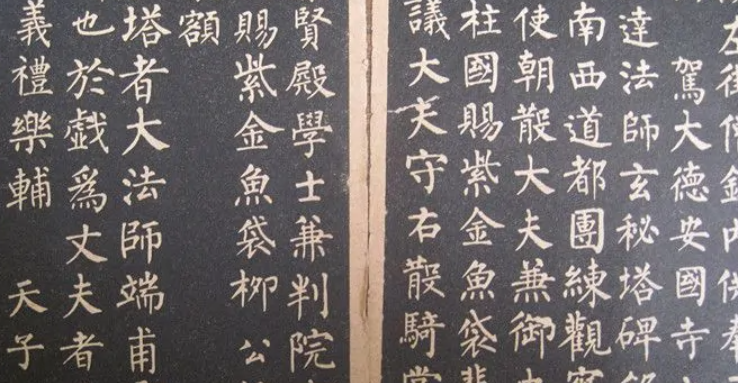 左街僧錄內供奉
駕大德安國寺
達法師玄秘塔碑銘
南西道都團練觀察
使朝散大夫兼御史
柱國賜紫金魚袋裴
議大夫守右散騎常
賢殿學士兼判院
賜紫金魚袋柳 公
額
塔者大法師端甫
也於戲爲丈夫者
義禮樂輔 天子